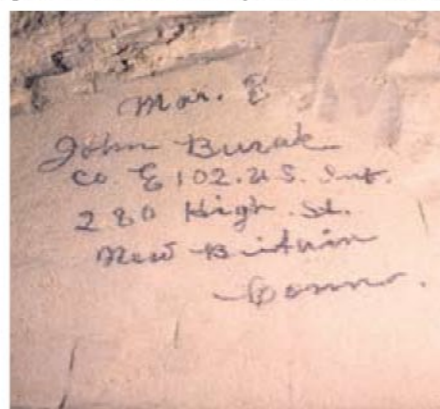 Mar. 8
John Burak
Co. E 102. U.S. Inf.
280 High St.
New Britain
Conn.